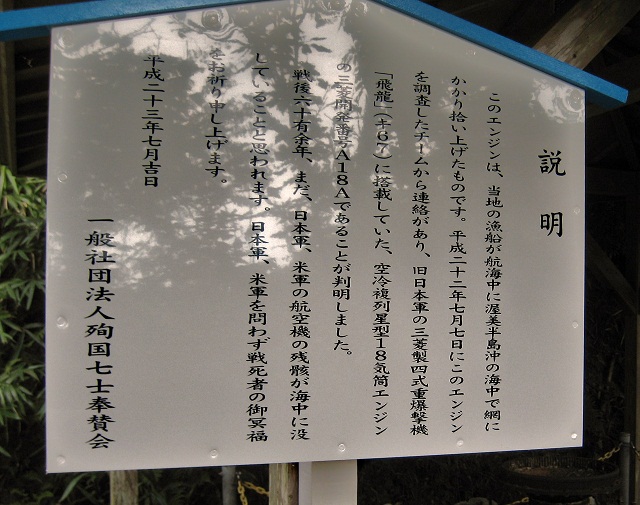 説明
このエンジンは、当地の漁船が航海中に渥美半島沖の海中で網に
かかり拾い上げたものです。平成二十二年七月七日にこのエンジン
を調査したチームから連絡があり、旧日本軍の三菱製四式重爆撃機
「飛龍」(キ67)に搭載していた、空冷複列星型18気筒エンジン
の三菱開発番号A18Aであることが判明しました。
戦後六十有余年、まだ、日本軍、米軍の航空機の残骸が海中に没
していることと思われます。日本軍、米軍を問わず戦死者の御冥福
をお祈り申し上げます。
平成二十三年七月吉日
一般社団法人殉国七士奉賛会